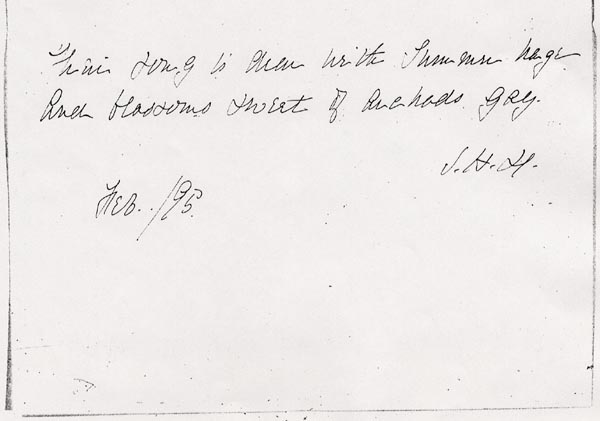 Their song is dear with Summer
And blossoms sweet of orchards gay.
J. H. H.
Feb. /95.